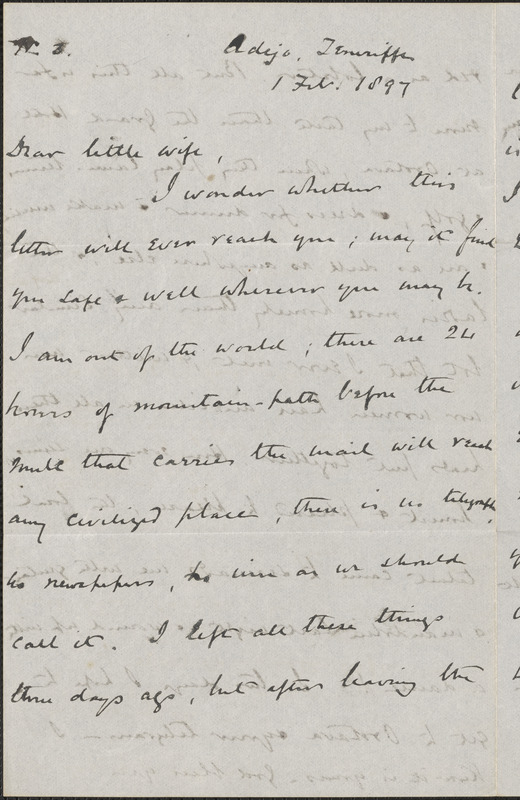 N. 3.
Adejo, Teneriffe
1 Feb. 1897
Dear little wife,
I wonder whether this
letter will ever reach you; may it find
you safe & well wherever you may be.
I am out of the world; there are 24
hours of mountain-path before the
mule that carries the mail will reach
any civilized place, there is no telegraph,
no newspapers, no inn as we should
call it. I left all these things
three days ago, but after leaving the